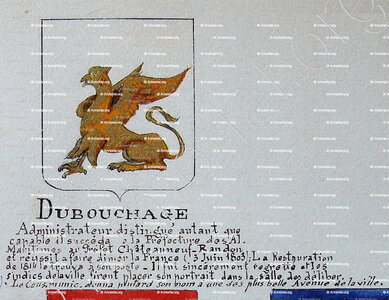 DUBOUCHAGE
Administrateur distingué autant que
capable il succéda à la Préfecture des Al.
Maritimes au Gr Châteauneuf-Randon,
et réussit a faire aimer la France (3 Juin 1803). La Restauration
de 1814 le trouva à son poste _ Il fut sincèrement regretté et les
sindics de la ville firent placer son portrait dans la salle des délibér.
Le Cons. munic. donna plus tard son nom a une des plus belle Avenue de la ville